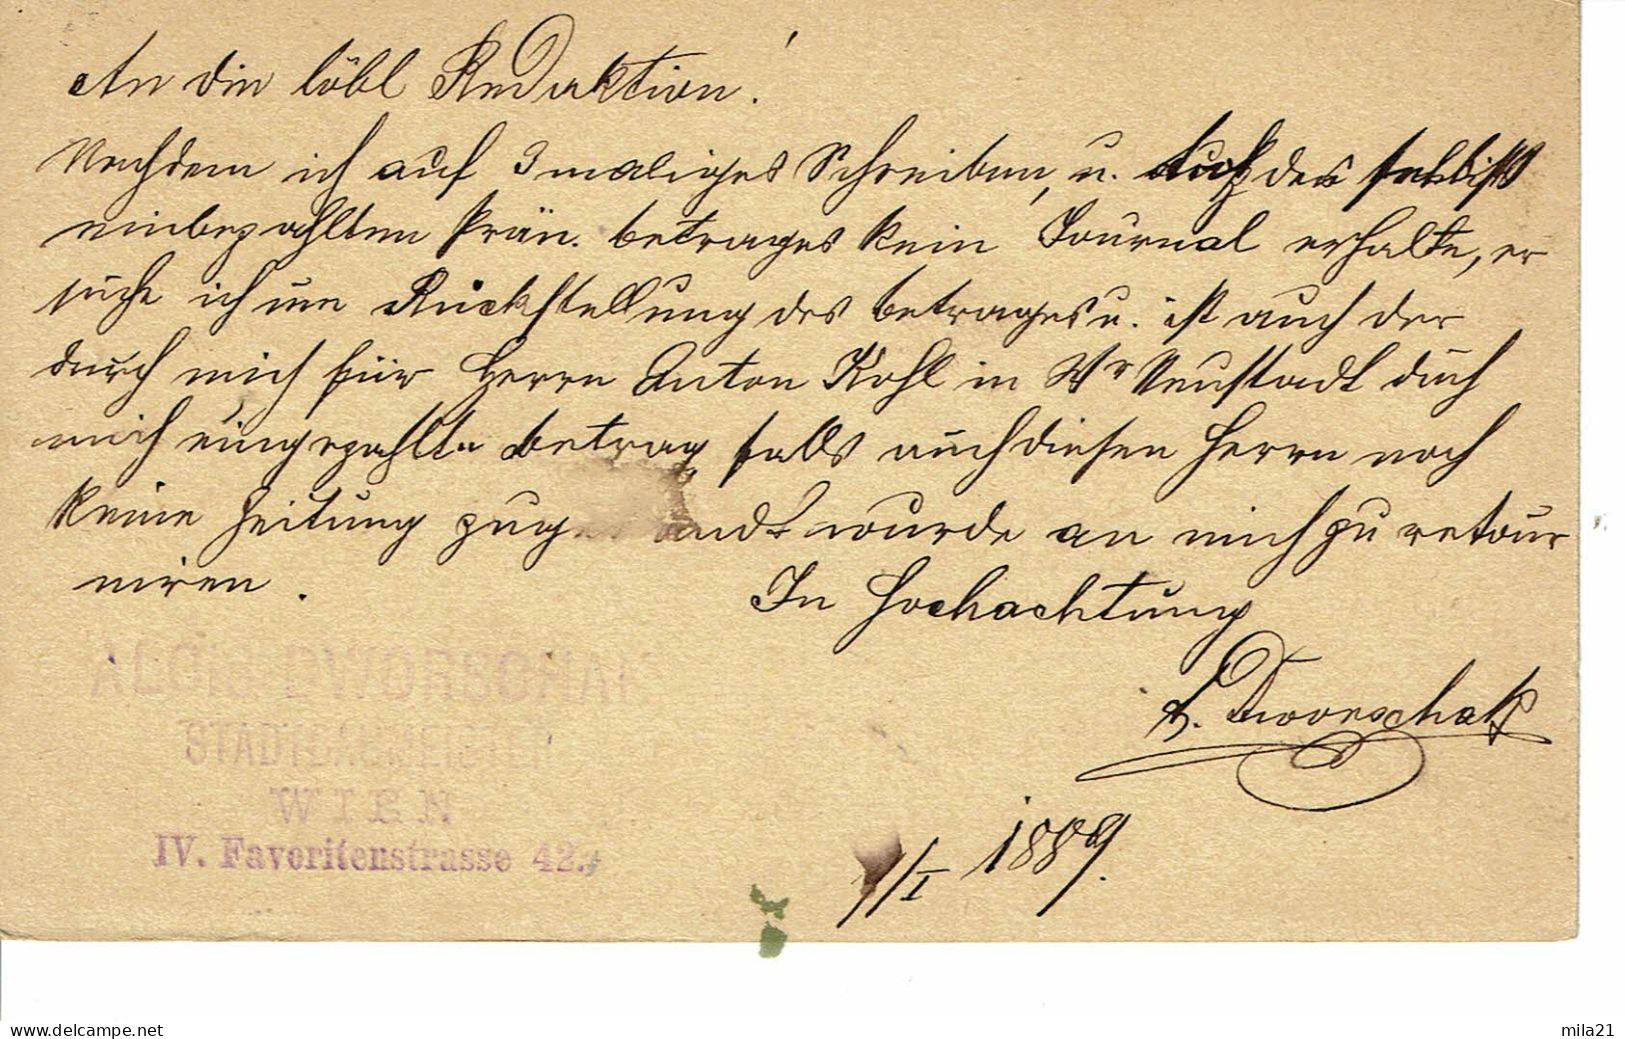 An die löbl Redaktion!
Nachdem ich auf 3 maliges Schreiben, u. trotz des selbst
einbezahlten Prän. betrages kein Journal erhalte, er
suche ich um Rückstellung des betrages u. ist auch der
durch mich für Herrn Anton Kohl in Wr Neustadt duch
mich eingezahlte betrag falls auch diesen Herrn noch
keine Zeitung zugesandt wurde an mich zu retour
niren.
In Hochachtung
A. Dworschak
1/I 1889.
ALOIS DWORSCHAK
STADTBAUMEISTER
WIEN
IV. Favoritenstrasse 42.
www.delcampe.net
mila21